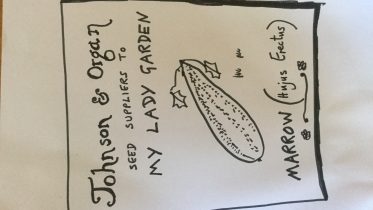 Johnson & Organ
SEED SUPPLIERS TO
MY LADY GARDEN
MARROW (Hujus Erectus)